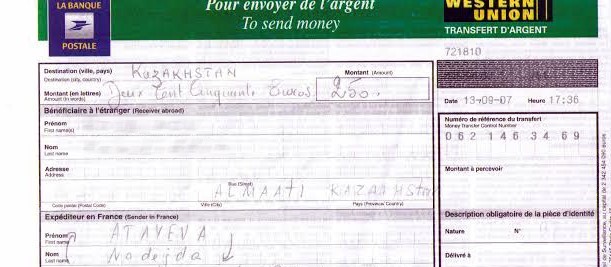 LA BANQUE
POSTALE
Pour envoyer de l'argent
To send money
WESTERN
UNION
TRANSFERT D'ARGENT
721810
Destination (ville, pays) KAZAKHSTAN Montant (Amount)
Destination (city, country)
Montant (en lettres) Deux Cent Cinquante Euros 250.
(Amount in words)
Date 13-09-07 Heure 17:36
Bénéficiaire à l'étranger (Receiver abroad)
Prénom
First name(s)
Nom
Last name
Adresse
Address
Rue (Street)
ALMAATI KAZAKHSTAN
Code postal (Postal Code) Ville (City) Pays/Province (Country)
Numéro de référence du transfert
Money Transfer Control Number
062 146 34 69
Montant à percevoir
Description obligatoire de la pièce d'identité
Nature N°
Délivré à
Expéditeur en France (Sender in France)
Prénom ATAYEVA
First name
Nom Nadegda
Last name